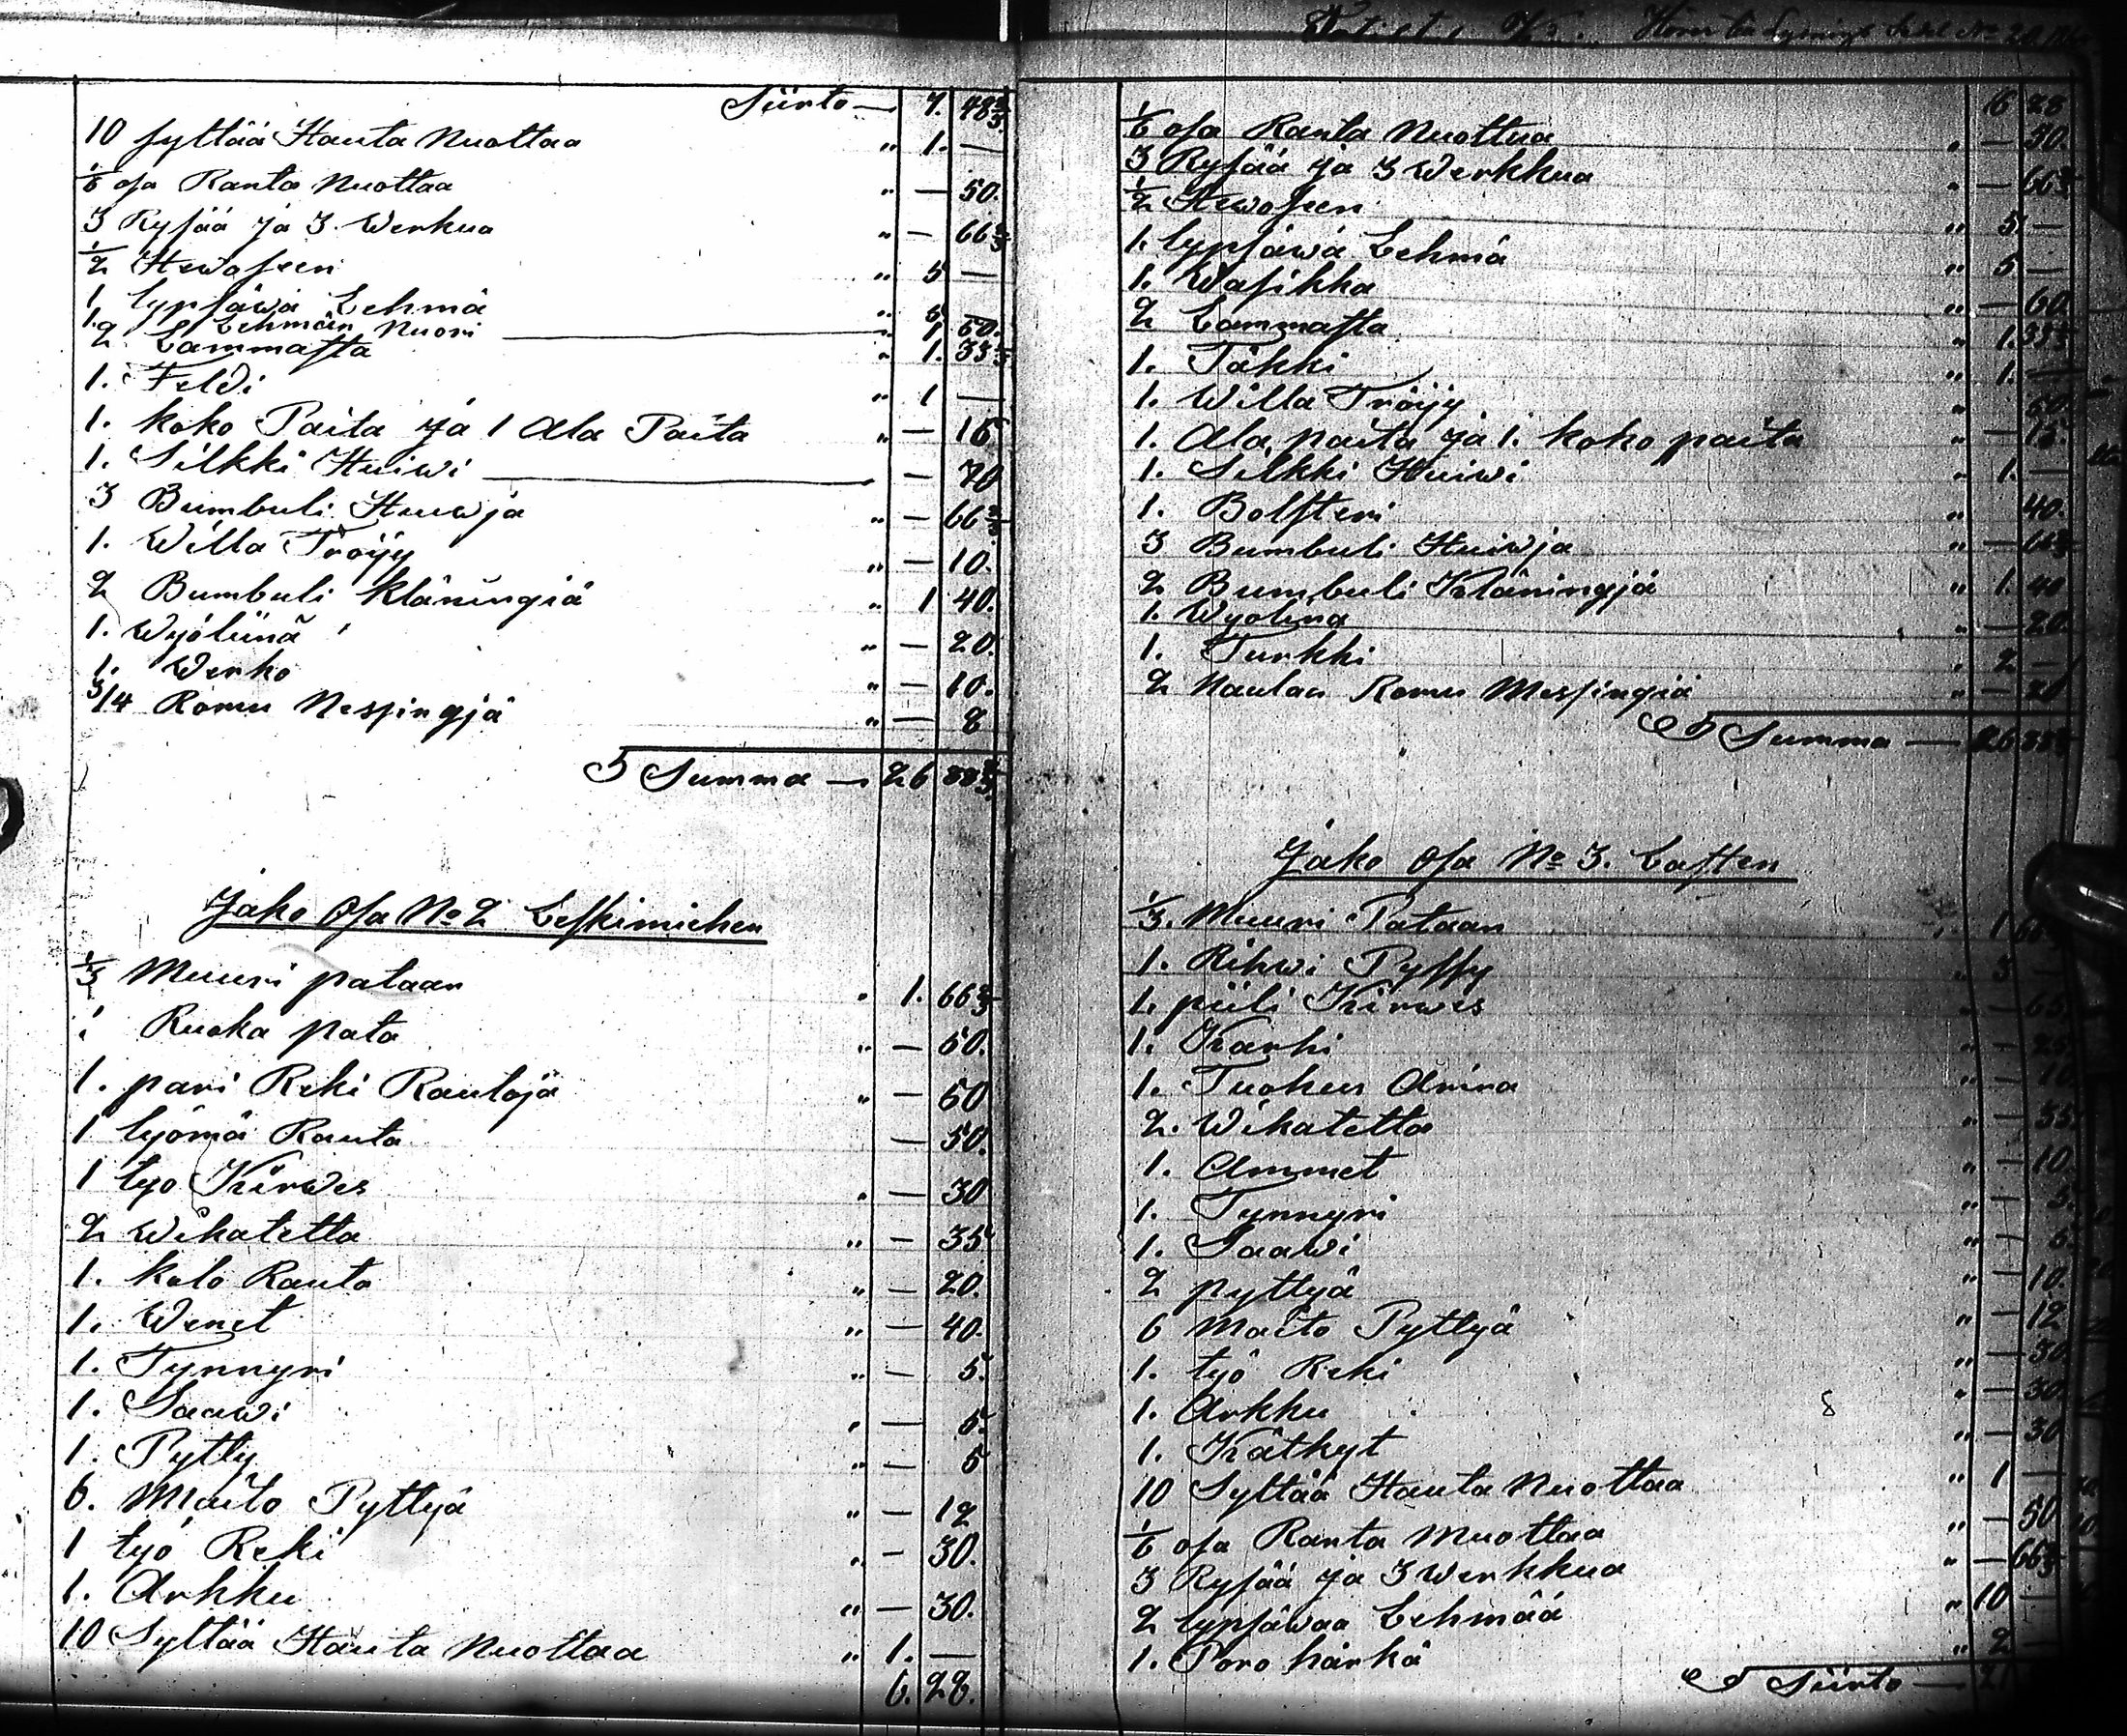 Siirto — 7. 48 2/3.
10 syltää Hauta Nuottaa " 1. —
1/6 osa Ranta Nuottaa " — 50.
3 Rysää ja 3. Werkua " — 66 2/3
1/2 Hewoseen " 5 —
1. lypsäwä Lehmä " 5. —
1. Lehmän Nuori — " 1 50.
2 Lammasta " 1. 33 1/3
1. Feldi " 1 —
1. koko Paita ja 1 Ala Paita " — 15
1. Silkki Huiwi — " — 70
3 Bumbuli Huiwja " — 66 2/3
1. Willa Tröijy " — 10.
2 Bumbuli kläningiä " 1 40.
1. Wyöliinä " — 20.
1. Werko " — 10.
3/4 Romu Messingjä " — 8
S Summa — 26 33 1/3.
Jako Osa No 2 Leskimiehen
1/3 Muuri pataan " 1. 66 2/3
1 Ruoka pata " — 50.
1. pari Reki Rautoja " — 50
1 lyömä Rauta — 50.
1 työ Kirwes " — 30
2 Wikatetta " — 35
1. kolo Rauta " — 20.
1. Wenet " — 40.
1. Tynnyri " — 5.
1. Saawi " — 5.
1. Pytty " — 5
6. Maito Pyttyä " — 12
1 työ Reki " — 30.
1. Arkku " — 30.
10 Syltää Hauta Nuottaa " 1. —
6. 28.
6 28
1/6 osa Ranta Nuottaa " — 50.
3 Rysää ja 3 Werkkua " — 66 2/3
1/2 Hewoseen " 5 —
1. lypsäwä Lehmä " 5 —
1. Wasikka " — 60.
2 Lammasta " 1. 33 1/3
1. Täkki " 1. —
1. Willa Tröijy " 50.
1. Ala paita ja 1. koko paita " — 15.
1. Silkki Huiwi " 1. —
1. Bolsteri " 40.
3 Bumbuli Huiwja " — 66 2/3
2 Bumbuli Kläningjä " 1. 40
1. Wyölinä " — 20.
1. Turkki " 2 —
2 Naulaa Romu Messingiä " — 20
S Summa — 26 33 1/3
Jako Osa No 3. Lasten
1/3. Muuri Pataan 1 66 2/3
1. Rihwi Pyssy " 3 —
1. piili Kirwes " — 65.
1. Karhi " — 25.
1. Tuohus Arina " — 10
2. Wikatetta " — 35.
1. Ammet " — 10.
1. Tynnyri " — 5.
1. Saawi " — 5.
2 pyttyä " — 10.
6 Maito Pyttyä " — 12
1. työ Reki " — 30
1. Arkku " — 30.
1. Kätkyt " — 30
10 Syltää Hauta Nuottaa " 1 —
1/6 osa Ranta Nuottaa " — 50
3 Rysää ja 3 Werkkua " — 66 2/3
2 lypsäwää Lehmää " 10 —
1. Poro härkä " 2 —
S Siirto —